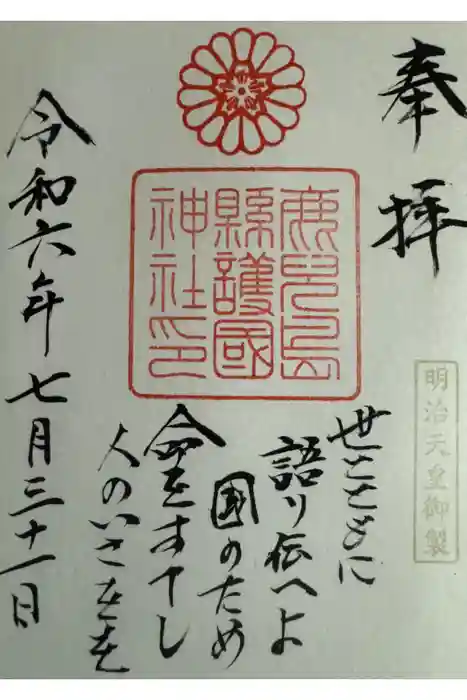 奉拝
明治天皇御製
鹿兒島
縣護國
神社印
世とともに
語り伝へよ
国のため
命をすてし
人のいさをを
令和六年七月三十一日